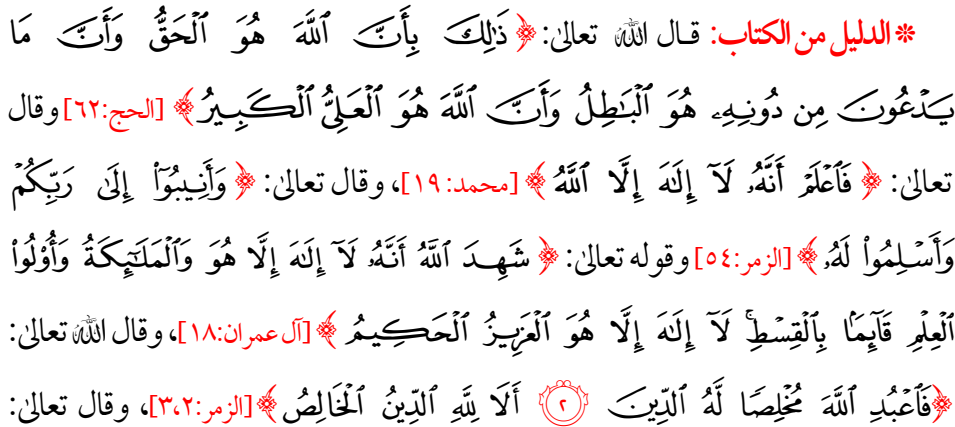 * الدليل من الكتاب: قال الله تعالى: ﴿ ذَٰلِكَ بِأَنَّ ٱللَّهَ هُوَ ٱلْحَقُّ وَأَنَّ مَا
يَدْعُونَ مِن دُونِهِۦ هُوَ ٱلْبَٰطِلُ وَأَنَّ ٱللَّهَ هُوَ ٱلْعَلِىُّ ٱلْكَبِيرُ ﴾ [الحج:٦٢] وقال
تعالى: ﴿ فَٱعْلَمْ أَنَّهُۥ لَآ إِلَٰهَ إِلَّا ٱللَّهُ ﴾ [محمد:١٩]، وقال تعالى: ﴿ وَأَنِيبُوٓا۟ إِلَىٰ رَبِّكُمْ
وَأَسْلِمُوا۟ لَهُۥ ﴾ [الزمر:٥٤] وقوله تعالى: ﴿ شَهِدَ ٱللَّهُ أَنَّهُۥ لَآ إِلَٰهَ إِلَّا هُوَ وَٱلْمَلَٰٓئِكَةُ وَأُو۟لُوا۟
ٱلْعِلْمِ قَآئِمًۢا بِٱلْقِسْطِ ۚ لَآ إِلَٰهَ إِلَّا هُوَ ٱلْعَزِيزُ ٱلْحَكِيمُ ﴾ [آل عمران:١٨]، وقال الله تعالى:
﴿فَٱعْبُدِ ٱللَّهَ مُخْلِصًا لَّهُ ٱلدِّينَ ٢ أَلَا لِلَّهِ ٱلدِّينُ ٱلْخَالِصُ ﴾ [الزمر:٣،٢]، وقال تعالى: